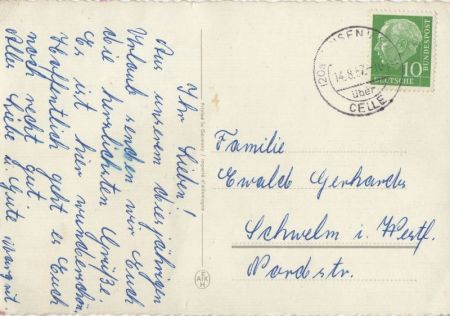 Ihr Lieben!
Aus unserem diesjährigen
Urlaub senden wir Euch
die herzlichsten Grüße.
Es ist hier wunderschön.
Hoffentlich geht es Euch
noch recht gut.
Alles Liebe u. Gute Margret
Printed in Germany / Imprimé d'Allemagne
(20a)
14.8.57
über
CELLE
10
DEUTSCHE
BUNDESPOST
Familie
Ewald Gerhardes
Schwelm i. Westf.
Nordstr.